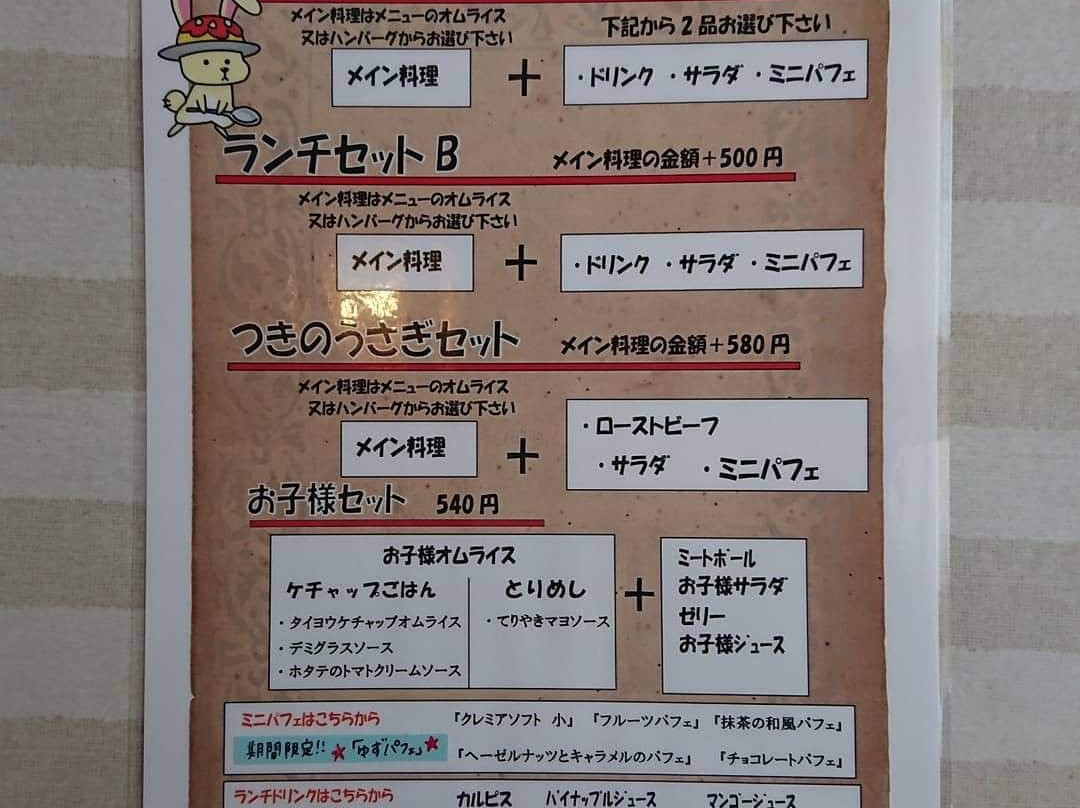 メイン料理はメニューのオムライス
又はハンバーグからお選び下さい
下記から2品お選び下さい
メイン料理
+
・ドリンク ・サラダ ・ミニパフェ
ランチセットB
メイン料理の金額+500円
メイン料理はメニューのオムライス
又はハンバーグからお選び下さい
メイン料理
+
・ドリンク ・サラダ ・ミニパフェ
つきのうさぎセット
メイン料理の金額+580円
メイン料理はメニューのオムライス
又はハンバーグからお選び下さい
メイン料理
+
・ローストビーフ
・サラダ ・ミニパフェ
お子様セット 540円
お子様オムライス
ケチャップごはん
・タイヨウケチャップオムライス
・デミグラスソース
・ホタテのトマトクリームソース
とりめし
・てりやきマヨソース
+
ミートボール
お子様サラダ
ゼリー
お子様ジュース
ミニパフェはこちらから
『クレミアソフト 小』 『フルーツパフェ』 『抹茶の和風パフェ』
期間限定!! ★「ゆずパフェ」★
『ヘーゼルナッツとキャラメルのパフェ』 『チョコレートパフェ』
ランチドリンクはこちらから
カルピス パイナップルジュース マンゴージュース